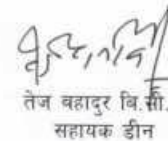 तेज बहादुर बि.सी.
सहायक डीन